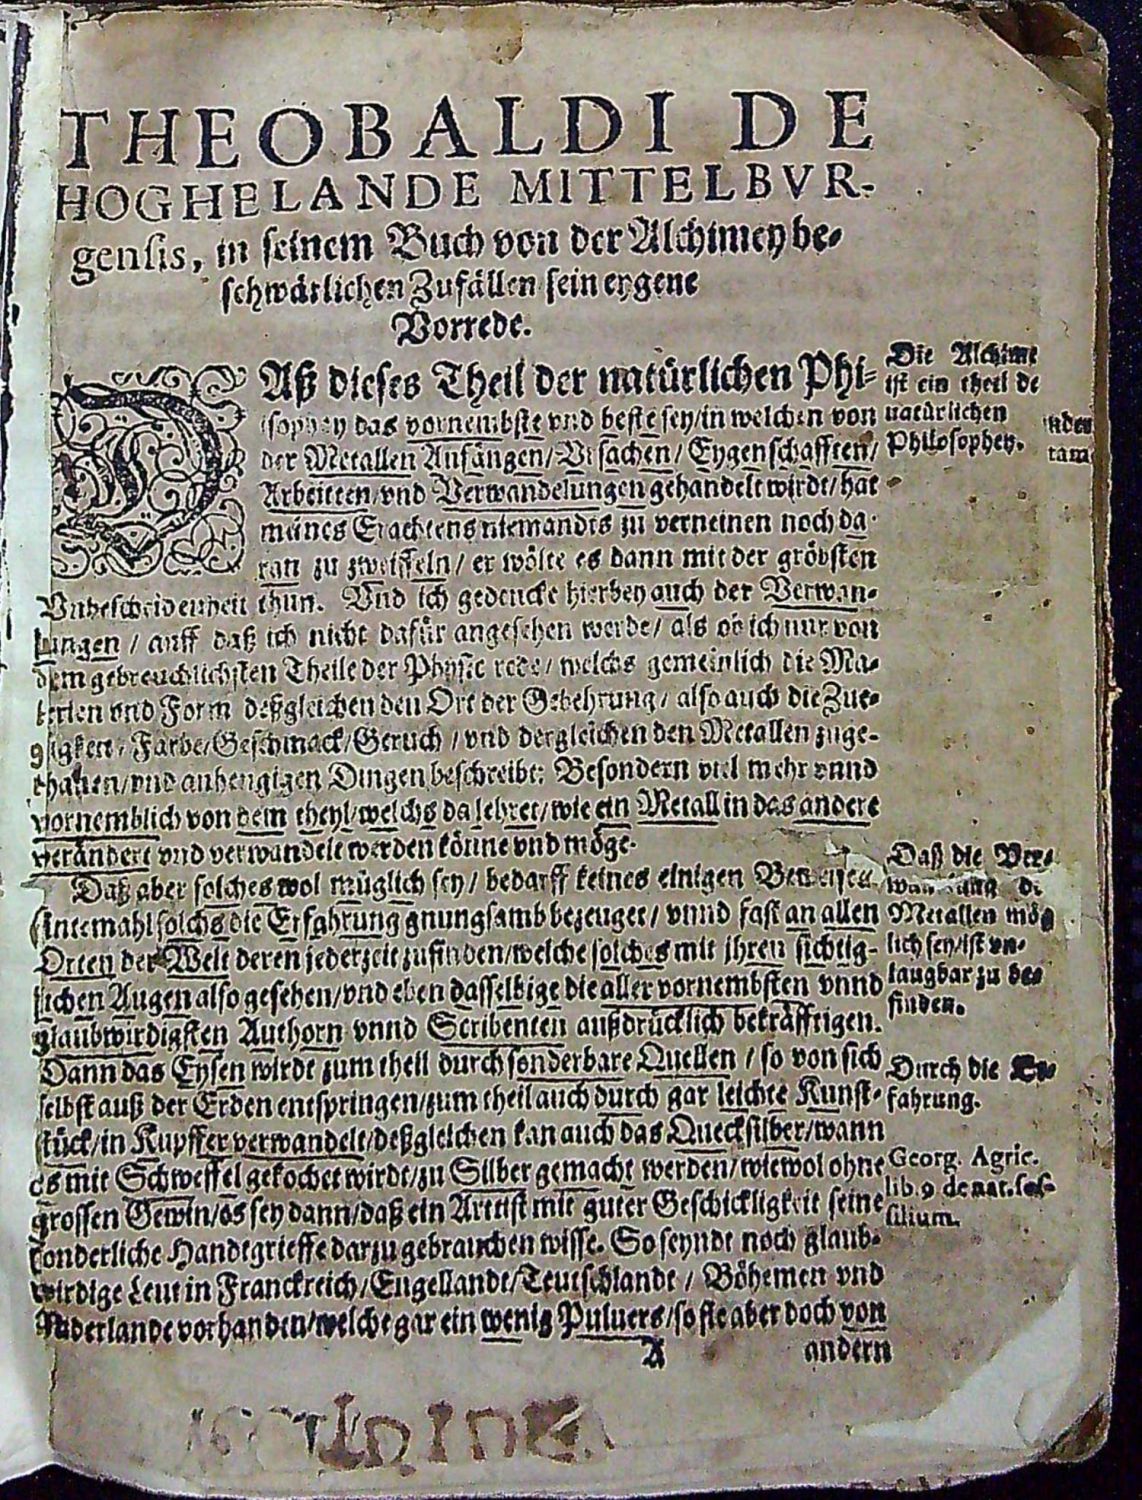 THEOBALDI DE
HOGHELANDE MITTELBVR-
gensis, in seinem Buch von der Alchimey be-
schwärlichen Zufällen sein eygene
Vorrede.
DAß dieses Theil der natürlichen Phi-
losophey das vornembste vnd beste sey/in welchen von
der Metallen Anfängen/Vrsachen/Eygenschafften/
Arbeitten/vnd Verwandelungen gehandelt wirdt/hat
meines Erachtens niemandts zu verneinen noch da-
ran zu zweiffeln/er wölte es dann mit der gröbsten
Vnbescheidenheit thun. Vnd ich gedencke hierbey auch der Verwan-
lungen/auff daß ich nicht dafür angesehen werde/als ob ich nur von
dem gebreuchlichsten Theile der Physic rede/welchs gemeinlich die Ma-
terien vnd Form deßgleichen den Ort der Gebehrung/also auch die Zue-
gigkeit/Farbe/Geschmack/Geruch/vnd dergleichen den Metallen zuge-
thanen/vnd anhengigen Dingen beschreibt: Besondern viel mehr vnnd
vornemblich von dem theyl/welchs da lehret/wie ein Metall in das andere
verändert vnd verwandelt werden könne vnd möge.
Daß aber solches wol müglich sey/bedarff keines einigen Beweisens
sintemahl solchs die Erfahrung gnungsamb bezeuget/vnnd fast an allen
Orten der Welt deren jederzeit zufinden/welche solches mit ihren sichtig-
lichen Augen also gesehen/vnd eben dasselbige die aller vornembsten vnnd
glaubwirdigsten Authorn vnnd Scribenten außdrücklich bekräfftigen.
Dann das Eysen wirdt zum theil durch sonderbare Quellen/so von sich
selbst auß der Erden entspringen/zum theil auch durch gar leichte Kunst-
stück/in Kupffer verwandelt/deßgleichen kan auch das Quecksilber/wann
es mit Schweffel gekochet wirdt/zu Silber gemacht werden/wiewol ohne
grossen Gewin/es sey dann/daß ein Artist mit guter Geschickligkeit seine
sonderliche Handtgrieffe darzu gebrauchen wisse. So seyndt noch glaub-
wirdige Leut in Franckreich/Engellandt/Teutschlandt/Böhemen vnd
Niderlande vorhanden/welche gar ein wenig Puluers/so sie aber doch von
A andern
Die Alchime
ist ein theil de
natürlichen
Philosophey.
Daß die Ver-
wandlung de
Metallen mög
lich sey/ist vn-
laugbar zu be-
finden.
Durch die Er-
fahrung.
Georg. Agric.
lib. 9 de nat. fos-
silium.